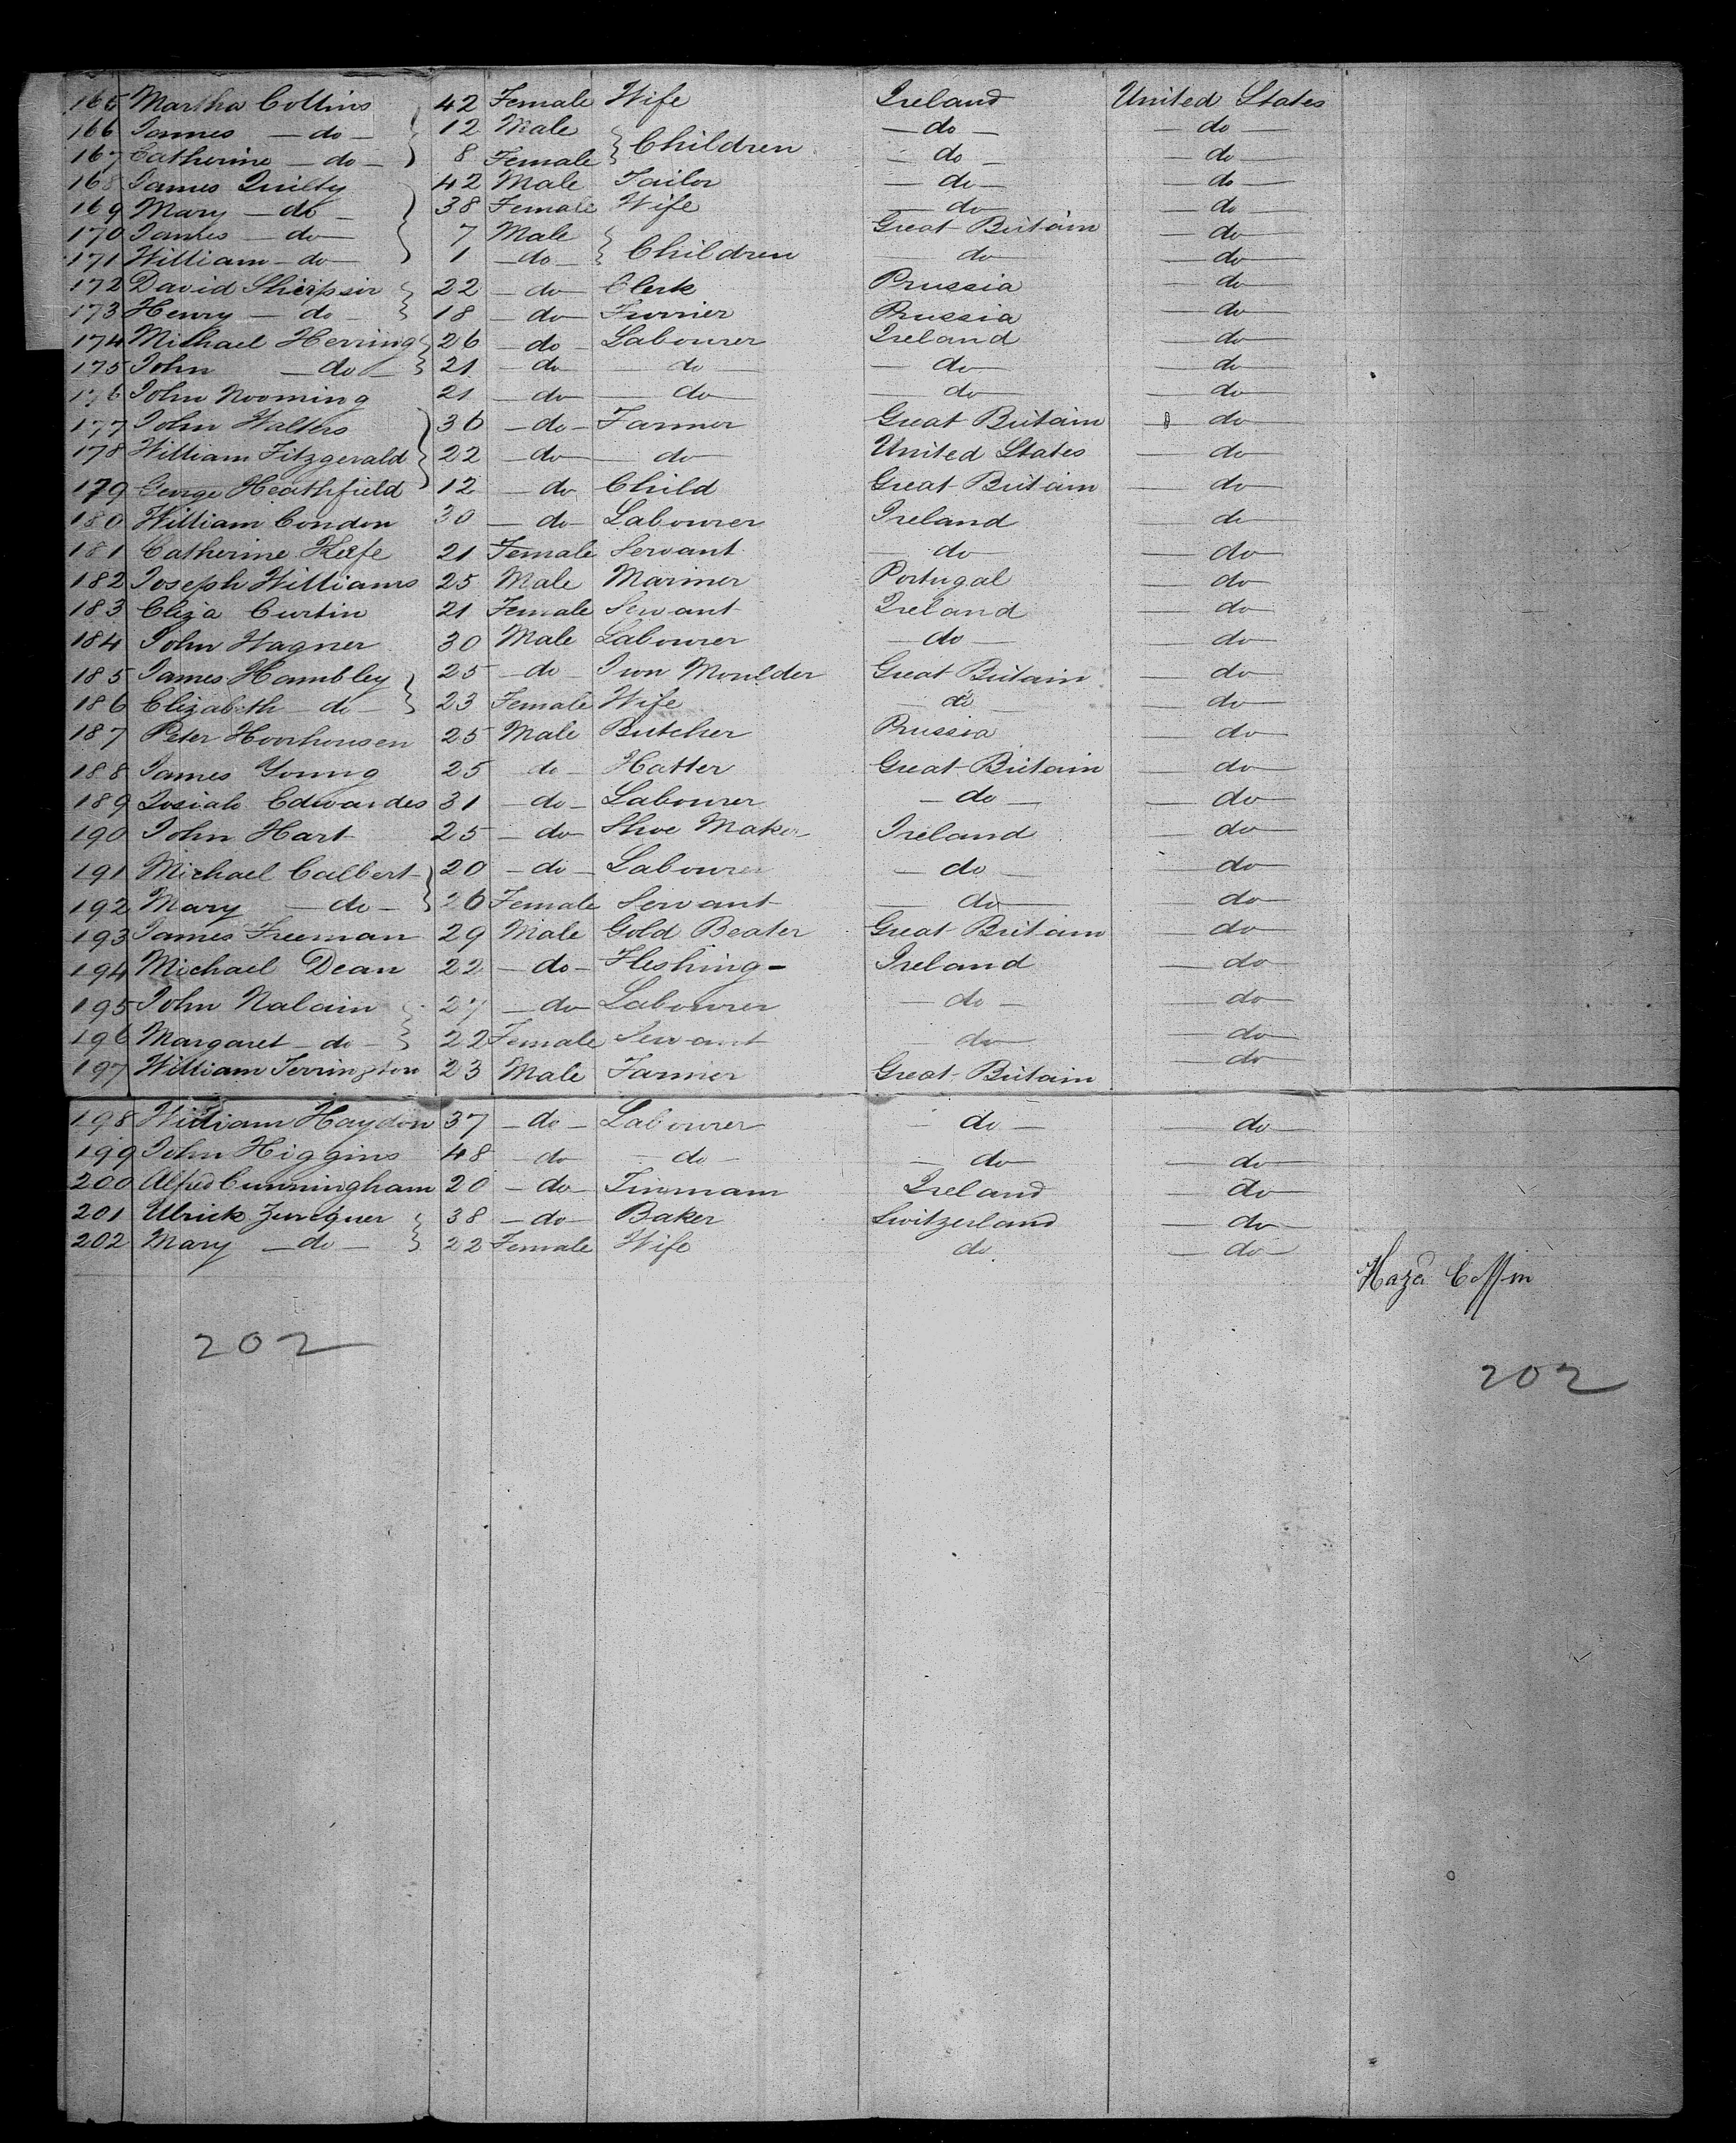 165 Martha Collins 42 Female Wife Ireland United States
166 James — do — 12 Male Children — do — — do —
167 Catherine — do — 8 Female — do — — do —
168 James Quilty 42 Male Tailor — do — — do —
169 Mary — do — 38 Female Wife — do — — do —
170 James — do — 7 Male Children Great Britain — do —
171 William — do — 1 — do — — do — — do —
172 David 22 — do — Clerk Prussia — do —
173 Henry — do — 18 — do — Furrier Prussia — do —
174 Michael Herring 26 — do — Labourer Ireland — do —
175 John — do — 21 — do — — do — — do — — do —
176 John Nooming 21 — do — — do — — do — — do —
177 John Walters 36 — do — Farmer Great Britain — do —
178 William Fitzgerald 22 — do — — do — United States — do —
179 George Heathfield 12 — do Child Great Britain — do —
180 William Condon 30 — do — Labourer Ireland — do —
181 Catherine Keefe 21 Female Servant — do — — do —
182 Joseph Williams 25 Male Mariner Portugal — do —
183 Eliza Curtin 21 Female Servant Ireland — do —
184 John Wagner 30 Male Labourer — do — — do —
185 James Hambley 25 — do — Iron Moulder Great Britain — do —
186 Elizabeth — do — 23 Female Wife — do — — do —
187 Peter Hoorhousen 25 Male Butcher Prussia — do —
188 James Young 25 do — Hatter Great Britain — do —
189 Josiah Edwardes 31 — do — Labourer — do — — do —
190 John Hart 25 — do — Shoe Maker Ireland — do —
191 Michael Calbert 20 — do — Labourer — do — — do —
192 Mary — do — 26 Female Servant — do — — do —
193 James Freeman 29 Male Gold Beater Great Britain — do —
194 Michael Dean 22 — do — Fleshing - Ireland — do —
195 John Nalain 27 — do — Labourer — do — — do —
196 Margaret — do — 22 Female Servant — do — — do —
197 William Terrington 23 Male Farmer Great Britain — do —
198 William Haydon 37 — do — Labourer — do — — do —
199 John Higgins 48 — do — do — — do — — do —
200 Alfred Cunningham 20 — do — Tinsmam Ireland — do —
201 Ulrick 38 — do — Baker Switzerland — do —
202 Mary — do — 22 Female Wife do — do —
Hazd Coffin
202
202